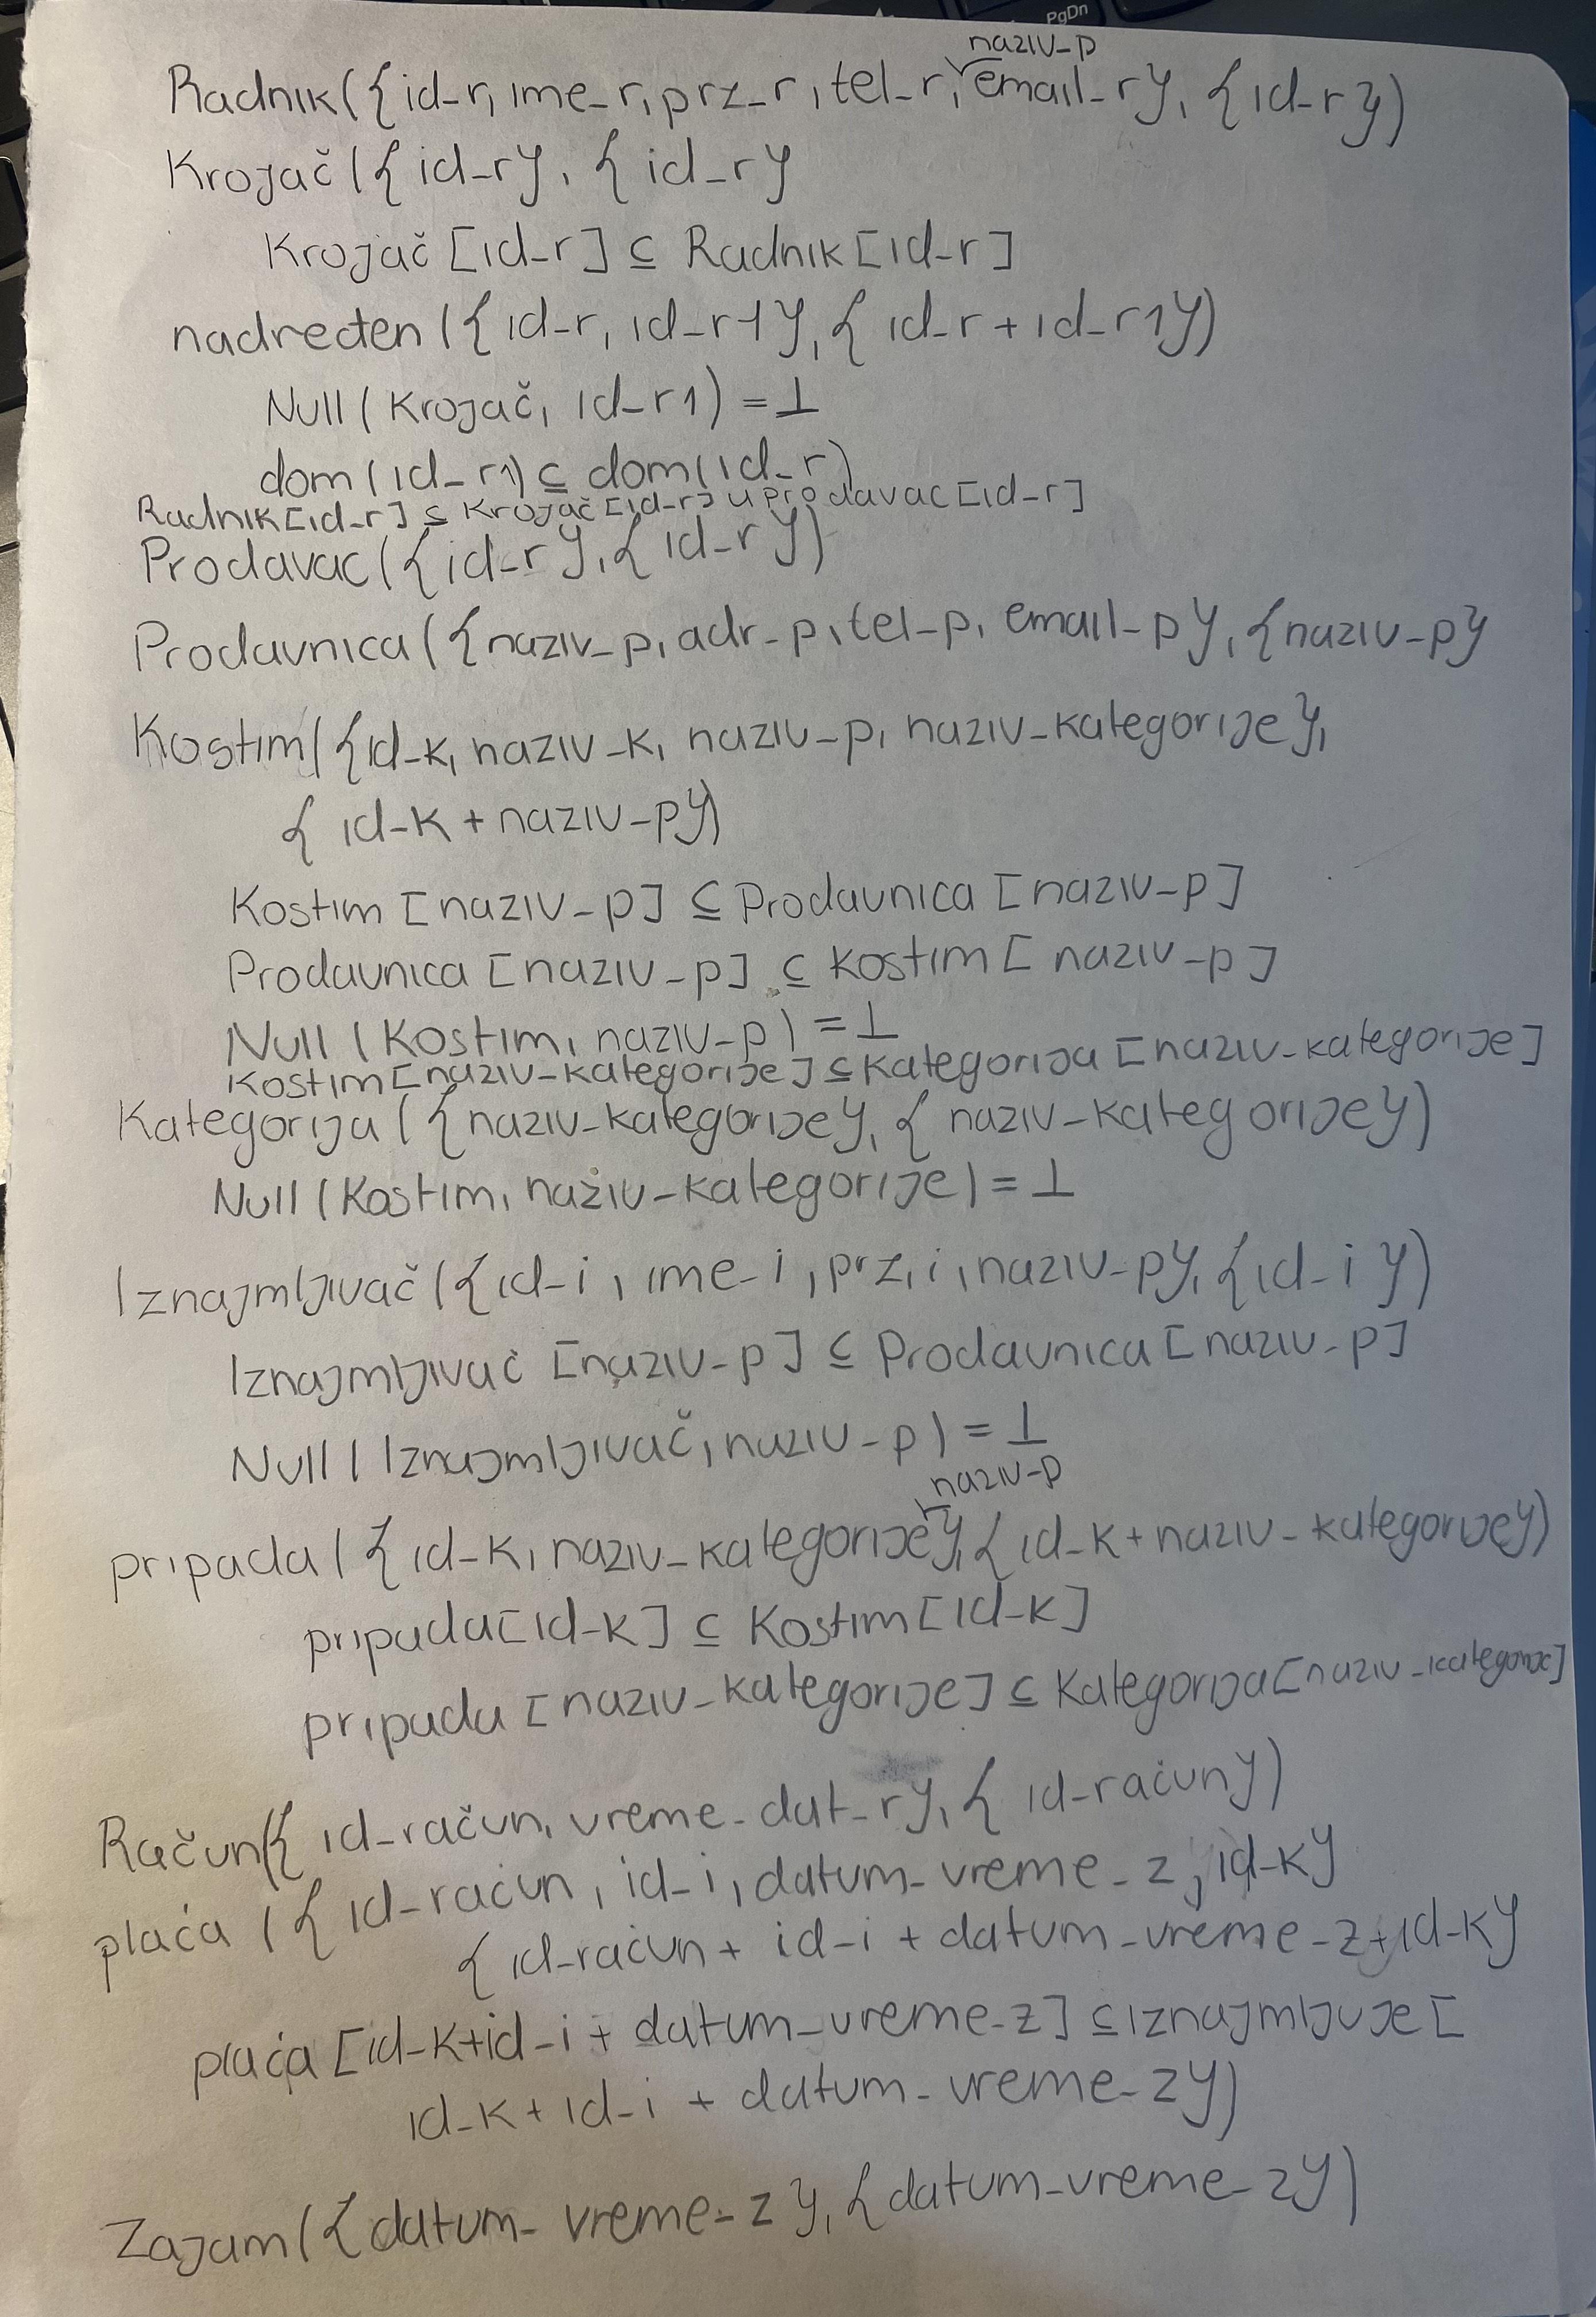 PgDn
naziv-p
Radnik({id-r, ime-r, prz-r, tel-r, email-r}, {id-r})
Krojač({id-r}, {id-r}
Krojač[id-r] ⊆ Radnik[id-r]
nadređen({id-r, id-r1}, {id-r+id-r1})
Null(Krojač, id-r1) = ⊥
dom(id-r1) ⊆ dom(id-r)
Radnik[id-r] ⊆ Krojač[id-r] ∪ Prodavac[id-r]
Prodavac({id-r}, {id-r})
Prodavnica({naziv-p, adr-p, tel-p, email-p}, {naziv-p}
Kostim({id-k, naziv-k, naziv-p, naziv-kategorije},
{id-k+naziv-p})
Kostim[naziv-p] ⊆ Prodavnica[naziv-p]
Prodavnica[naziv-p] ⊆ Kostim[naziv-p]
Null(Kostim, naziv-p) = ⊥
Kostim[naziv-kategorije] ⊆ Kategorija[naziv-kategorije]
Kategorija({naziv-kategorije}, {naziv-kategorije})
Null(Kostim, naziv-kategorije) = ⊥
Iznajmljivač({id-i, ime-i, prz,i, naziv-p}, {id-i})
Iznajmljivač[naziv-p] ⊆ Prodavnica[naziv-p]
Null(Iznajmljivač, naziv-p) = ⊥
naziv-p
pripada({id-k, naziv-kategorije}, {id-k+naziv-kategorije})
pripada[id-k] ⊆ Kostim[id-k]
pripada[naziv-kategorije] ⊆ Kategorija[naziv-kategorije]
Račun({id-račun, vreme-dat-r}, {id-račun})
plaća({id-račun, id-i, datum-vreme-z, id-k}
{id-račun+id-i+datum-vreme-z+id-k}
plaća[id-k+id-i+datum-vreme-z] ⊆ iznajmljuje[
id-k+id-i+datum-vreme-z})
Zajam({datum-vreme-z}, {datum-vreme-z})